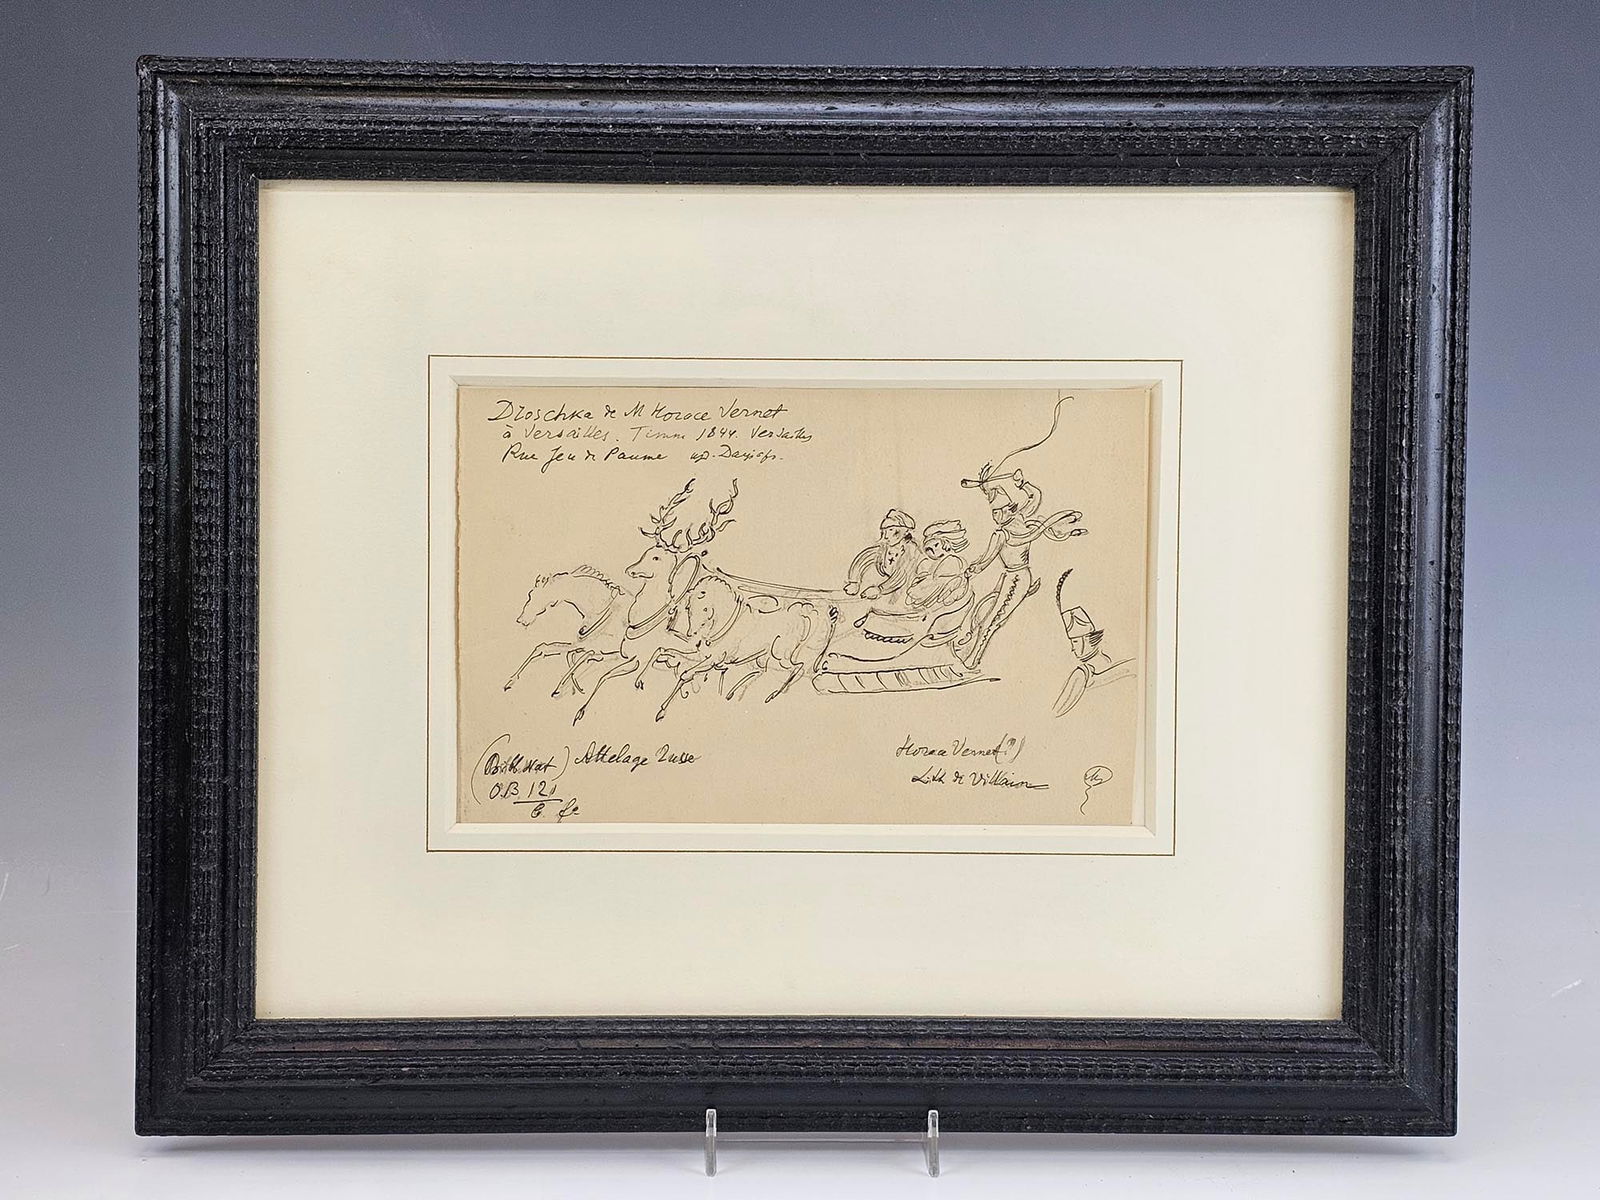 Droschka de M Horace Vernet
à Versailles. Timm 1844. Versailles
Rue Jeu de Paume
(Bibl Nat) Attelage Russe
O.B. 121
Horace Vernet (?)
Lith de Villain